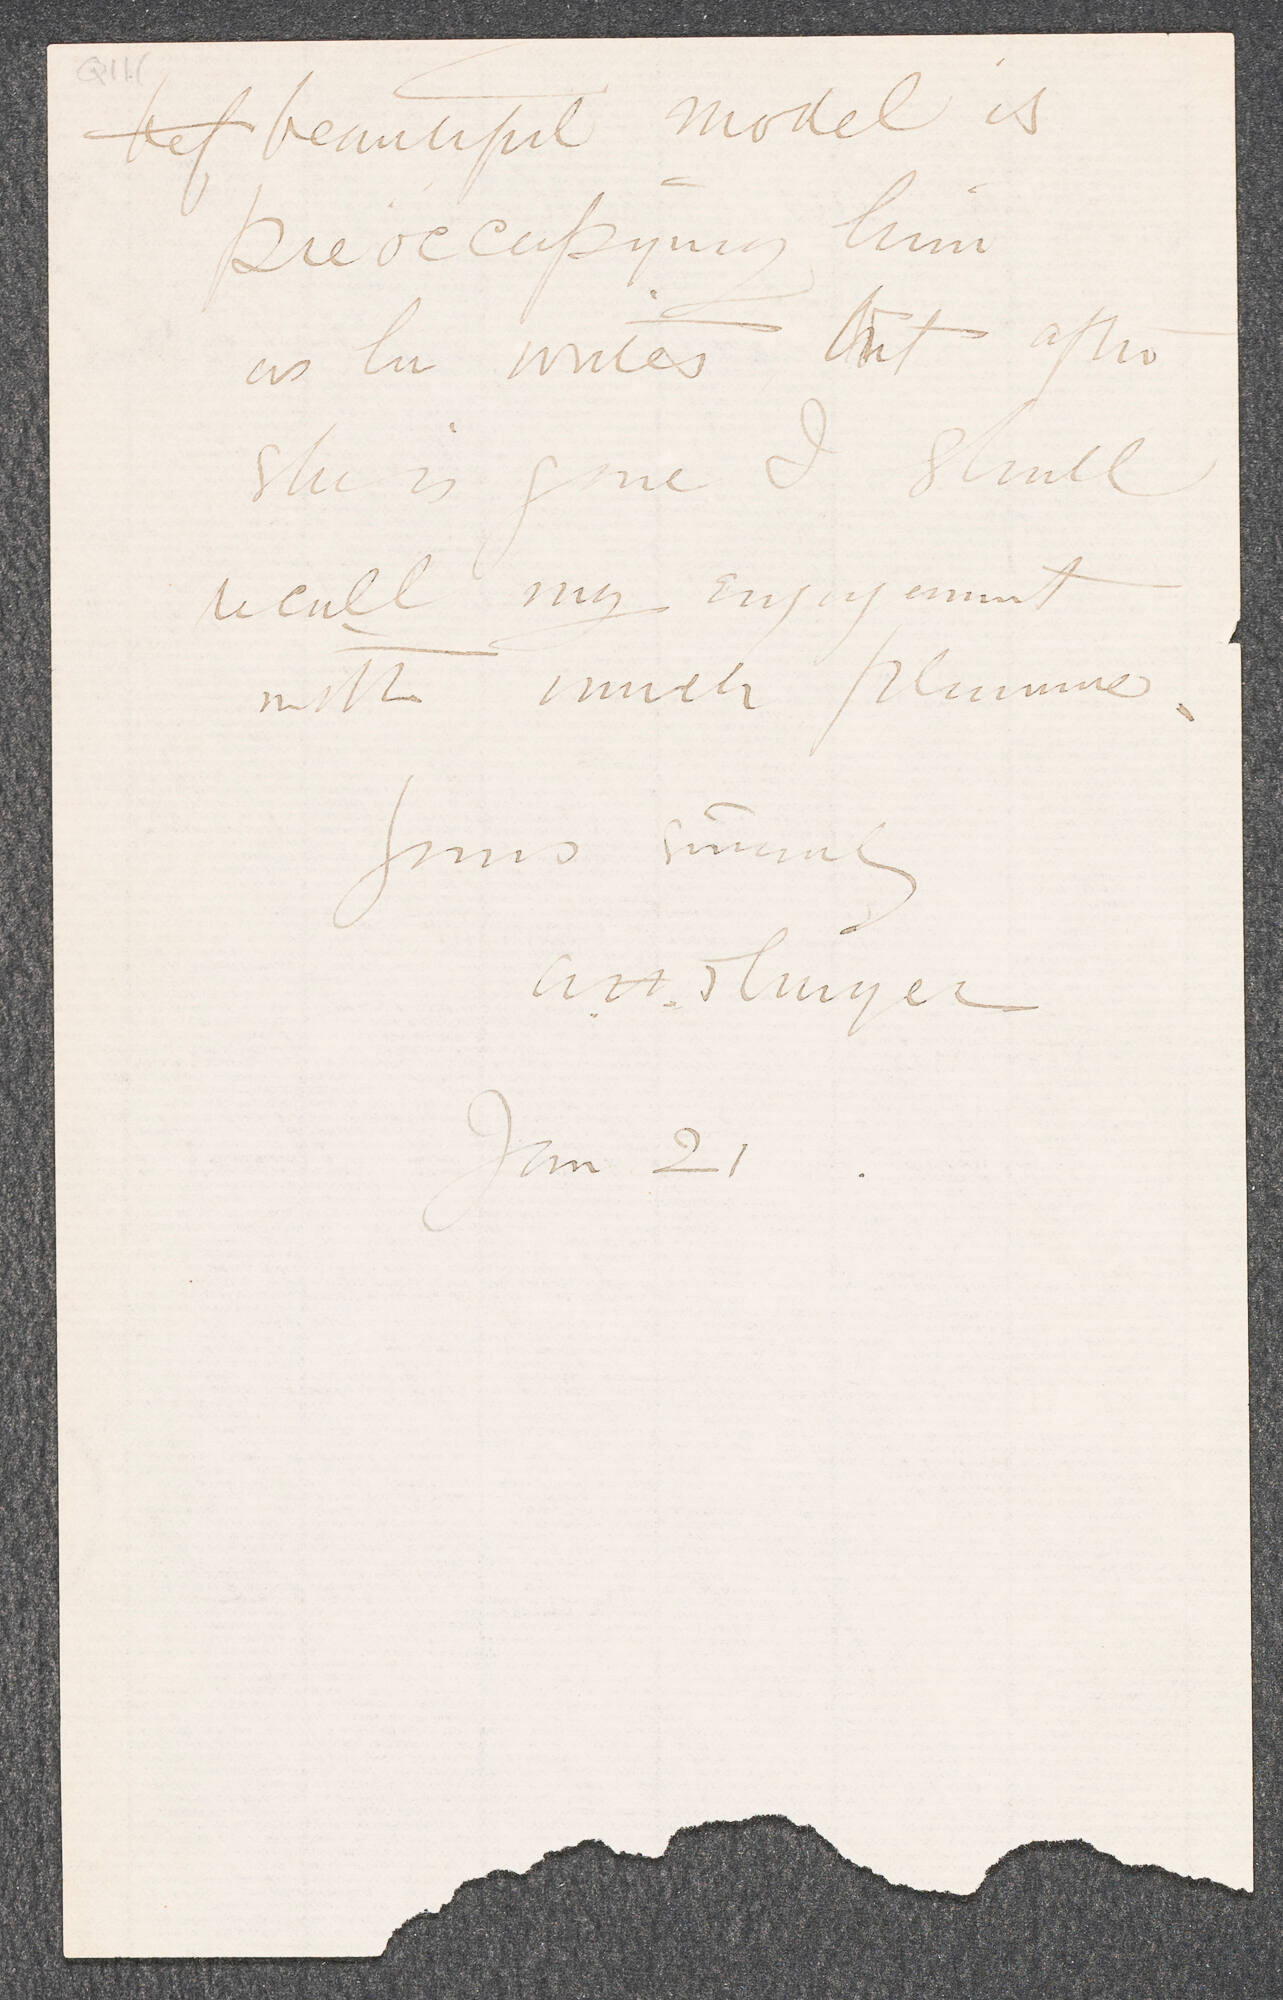 bef beautiful model is
preoccupying him
as he writes, but after
she is gone I shall
recall my engagement
with much pleasure.
Yours sincerely
A.H. Thayer
Jan 21